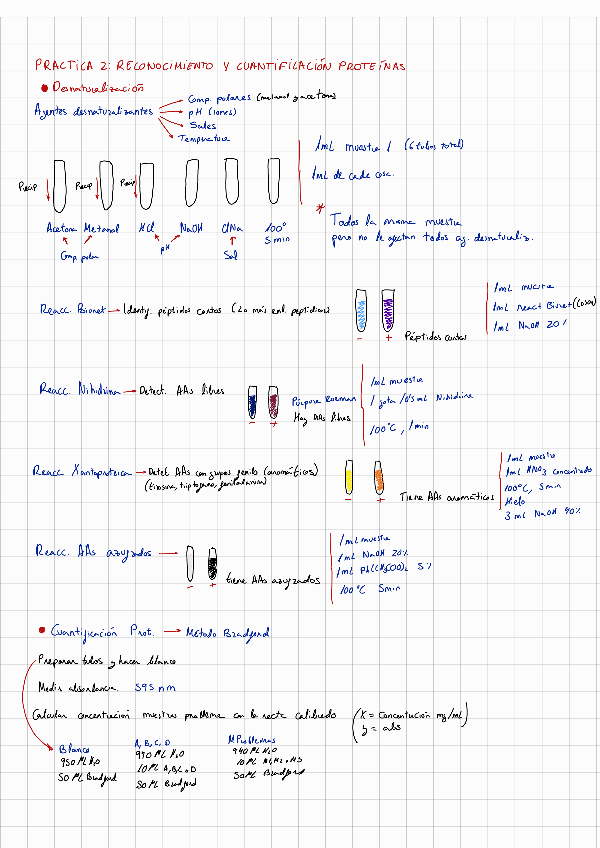 PRACTICA 2: RECONOCIMIENTO Y CUANTIFICACIÓN PROTEÍNAS
• Desnaturalización
Agentes desnaturalizantes
Comp. polares (metanol y acetona)
pH (iones)
Sales
Temperatura
1mL muestra 1 (6 tubos total)
1mL de cada osc.
* Todos la misma muestra
pero no le afectan todos ag. desnaturaliz.
Precip Precip Precip
Acetona Metanol HCl NaOH ClNa 100°
5 min
Comp. polar pH Sal
Reacc. Biuret → Identif. péptidos cortos (Lo más enl. peptídicos)
- + Péptidos cortos
1mL muestra
1mL react Biuret (Cosa)
1mL NaOH 20%
Reacc. Nihidrina → Detect. AAs libres
- + Púrpura Rueman
Hay AAs libres
1mL muestra
1 gota /0'5 mL Nihidrina
100°C, 1 min
Reacc Xantoproteica → Detect AAs con grupos fenilo (aromáticos)
(tirosina, triptófano, fenilalanina)
- + Tiene AAs aromáticos
1mL muestra
1mL HNO3 concentrado
100°C, 5min
Hielo
3 mL NaOH 40%
Reacc. AAs azufrados →
- + tiene AAs azufrados
1mL muestra
1mL NaOH 20%
1mL Pb(CH3COO)2 5%
100°C 5min
• Cuantificación Prot. → Método Bradford
Preparar tubos y hacer blanco
Medir absorbancia. 595 nm
Calcular concentración muestras problema con la recta calibrado (x = Concentración mg/mL)
y = abs
Blanco
950 ML H2O
50 ML Bradford
A, B, C, D
940 ML H2O
10 ML A, B, C o D
50 ML Bradford
M Problemas
940 ML H2O
10 ML M1, M2 o M3
50 ML Bradford